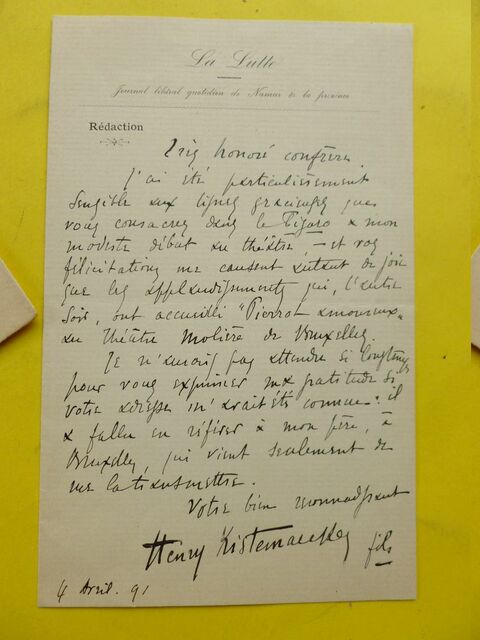 La Lutte
Journal libéral quotidien de Namur & de la province
Rédaction
Très honoré confrère,
J'ai été particulièrement
sensible aux lignes gracieuses que
vous consacrez dans le Figaro à mon
modeste début au théâtre, – et vos
félicitations me causent autant de joie
que les applaudissements qui, l'autre
soir, ont accueilli "Pierrot amoureux"
au théâtre Molière de Bruxelles.
Je n'aurais pas attendu si longtemps
pour vous exprimer ma gratitude si
votre adresse m'avait été connue : il
a fallu en référer à mon père, à
Bruxelles, qui vient seulement de
me la transmettre.
Votre bien reconnaissant
Henry Kistemaeckers fils
4 Avril. 91